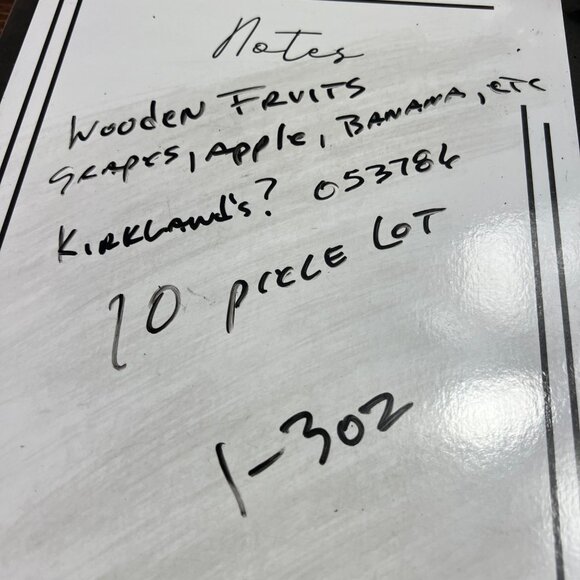 Notes
Wooden FRUITS
GRAPES, Apple, BANANA, ETC
KIRKLAND'S? 053786
10 PIECE LOT
1-302